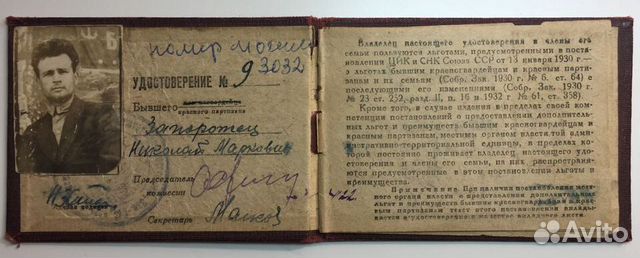 номер
УДОСТОВЕРЕНИЕ № 93032
Бывшего красногвардейца
красного партизана
Запорожец
Николай Маркович
Председатель
комиссии
Секретарь
Владелец настоящего удостоверения и члены его
семьи пользуются льготами, предусмотренными в поста-
новлении ЦИК и СНК Союза ССР от 13 января 1930 г.—
о льготах бывшим красногвардейцам и красным партиза-
нам и их семьям (Собр. Зак. 1930 г. № 6, ст. 64) и
последующими его изменениями (Собр. Зак. 1930 г.
№ 23 ст. 252, разд. II, п. 16 и 1932 г. № 61, ст. 358).
Кроме того, в случае издания в пределах своей ком-
петенции постановлений о предоставлении дополнитель-
ных льгот и преимуществ бывшим красногвардейцам и
красным партизанам, местным органом власти той адми-
нистративно-территориальной единицы, в пределах ко-
торой постоянно проживает владелец настоящего удосто-
верения и члены его семьи, на них распространяются
предусмотренные в этом постановлении льготы и
преимущества.
Примечание. При наличии постановления мест-
ного органа власти о представлении дополнительных
льгот и преимуществ бывшим красногвардейцам и крас-
ным партизанам текст этого постановления вклады-
вается в удостоверение в качестве вкладного листа.
Avito